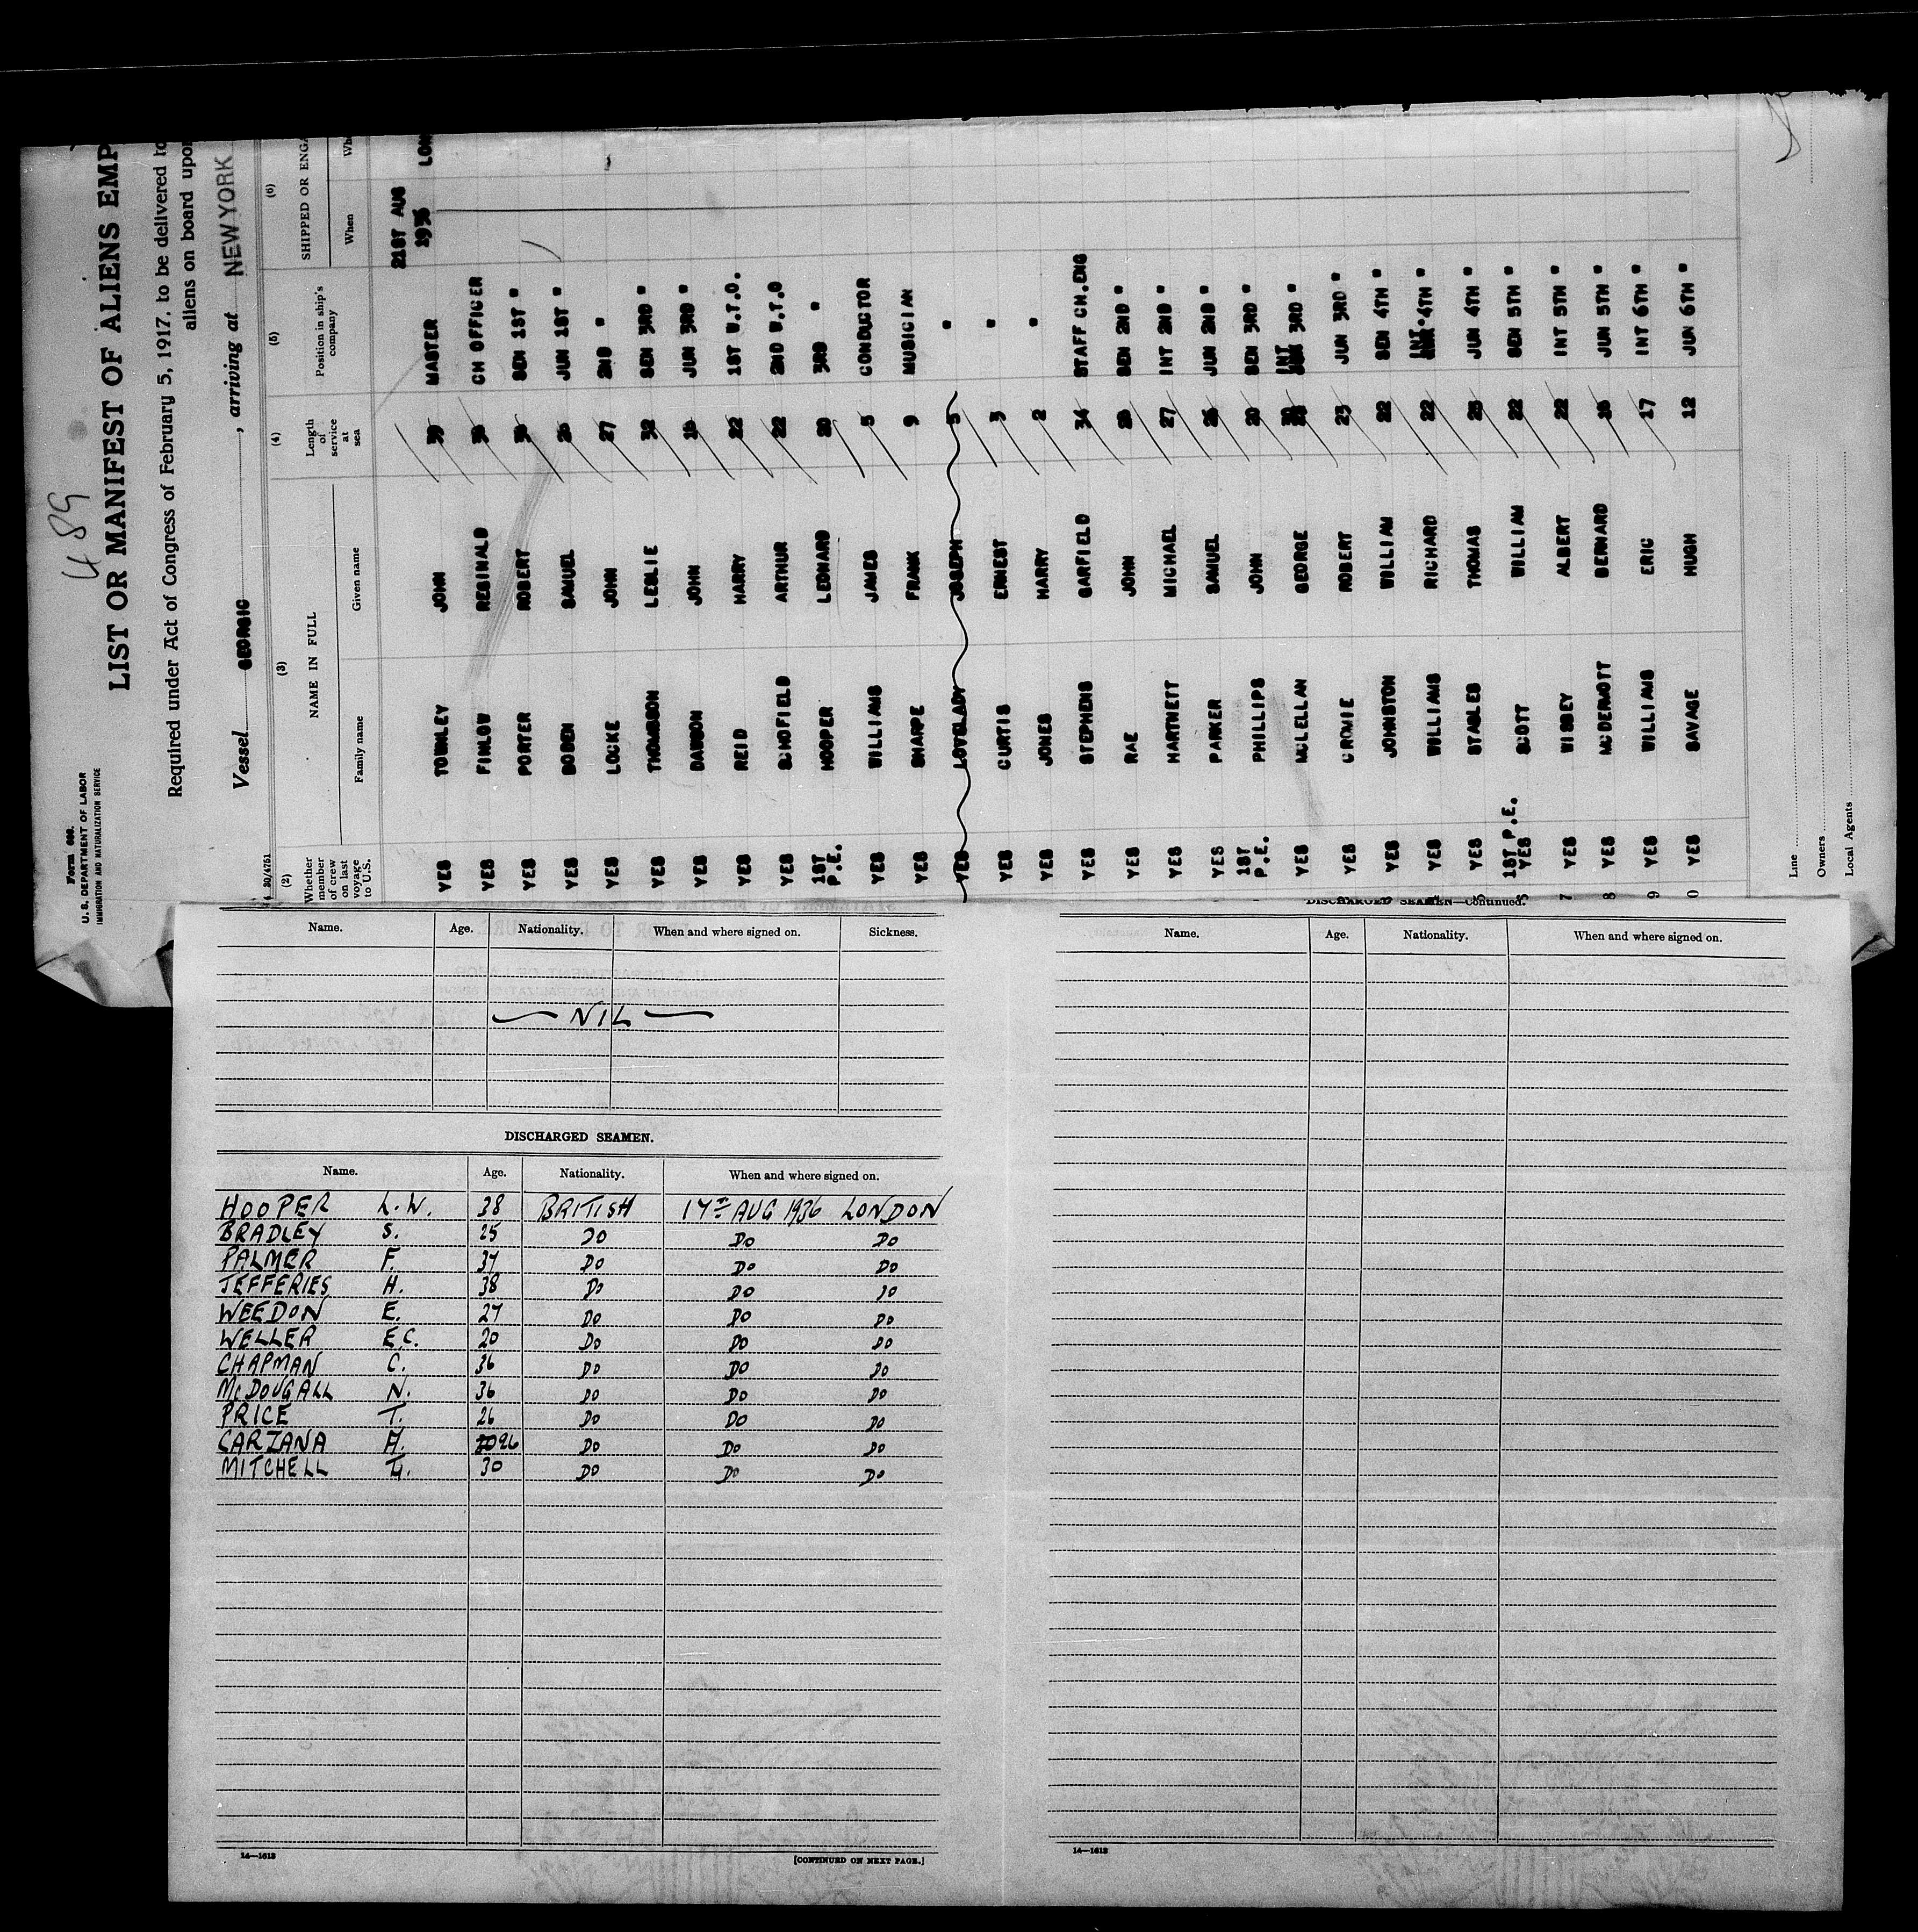 Form 689.
U. S. DEPARTMENT OF LABOR
IMMIGRATION AND NATURALIZATION SERVICE
489
LIST OR MANIFEST OF ALIENS EMP
Required under Act of Congress of February 5, 1917, to be delivered to
aliens on board upon
Vessel GEORGIC , arriving at NEW YORK
(2) (3) (4) (5) (6)
Whether member of crew on last voyage to U.S. NAME IN FULL Length of service at sea Position in ship's company SHIPPED OR ENGA
Family name Given name When Wh
21ST AUG
YES TOWNLEY JOHN 39 MASTER 1936 LON
YES FINLOW REGINALD CH OFFICER
YES PORTER ROBERT SEN 1ST "
YES BODEN SAMUEL JUN 1ST "
YES LOCKE JOHN 27 2ND "
YES THOMPSON LESLIE 32 SEN 3RD "
YES DABSON JOHN JUN 3RD "
YES REID HARRY 22 1ST W.T.O.
YES SCHOFIELD ARTHUR 22 2ND W.T.O
1ST P.E. HOOPER LEONARD 20 3RD "
YES WILLIAMS JAMES 5 CONDUCTOR
YES SHARPE FRANK 9 MUSICIAN
YES LOVELADY JOSEPH 5 "
YES CURTIS ERNEST 3 "
YES JONES HARRY 2 "
YES STEPHENS GARFIELD 34 STAFF CH.ENG
YES RAE JOHN SEN 2ND "
YES HARTNETT MICHAEL 27 INT 2ND "
YES PARKER SAMUEL JUN 2ND "
1ST P.E. PHILLIPS JOHN 20 SEN 3RD "
YES MCLELLAN GEORGE INT 3RD "
YES CROWIE ROBERT 23 JUN 3RD "
YES JOHNSTON WILLIAM 22 SEN 4TH "
YES WILLIAMS RICHARD 22 INT 4TH "
YES STABLES THOMAS JUN 4TH "
1ST P.E. YES SCOTT WILLIAM 22 SEN 5TH "
7 YES WISBEY ALBERT 22 INT 5TH "
8 YES MCDERMOTT BERNARD JUN 5TH "
9 YES WILLIAMS ERIC 17 INT 6TH "
0 YES SAVAGE HUGH 12 JUN 6TH "
Line
Owners
Local Agents
Name. Age. Nationality. When and where signed on. Sickness.
NIL
DISCHARGED SEAMEN.
Name. Age. Nationality. When and where signed on.
HOOPER L.W. 38 BRITISH 17TH AUG 1936 LONDON
BRADLEY S. 25 DO DO DO
PALMER F. 37 DO DO DO
JEFFERIES H. 38 DO DO DO
WEEDON E. 27 DO DO DO
WELLER E.C. 20 DO DO DO
CHAPMAN C. 36 DO DO DO
McDOUGALL N. 36 DO DO DO
PRICE T. 26 DO DO DO
CARZANA A. 26 DO DO DO
MITCHELL G. 30 DO DO DO
14—1613
[CONTINUED ON NEXT PAGE.]
DISCHARGED SEAMEN—Continued.
Name. Age. Nationality. When and where signed on.
14—1613